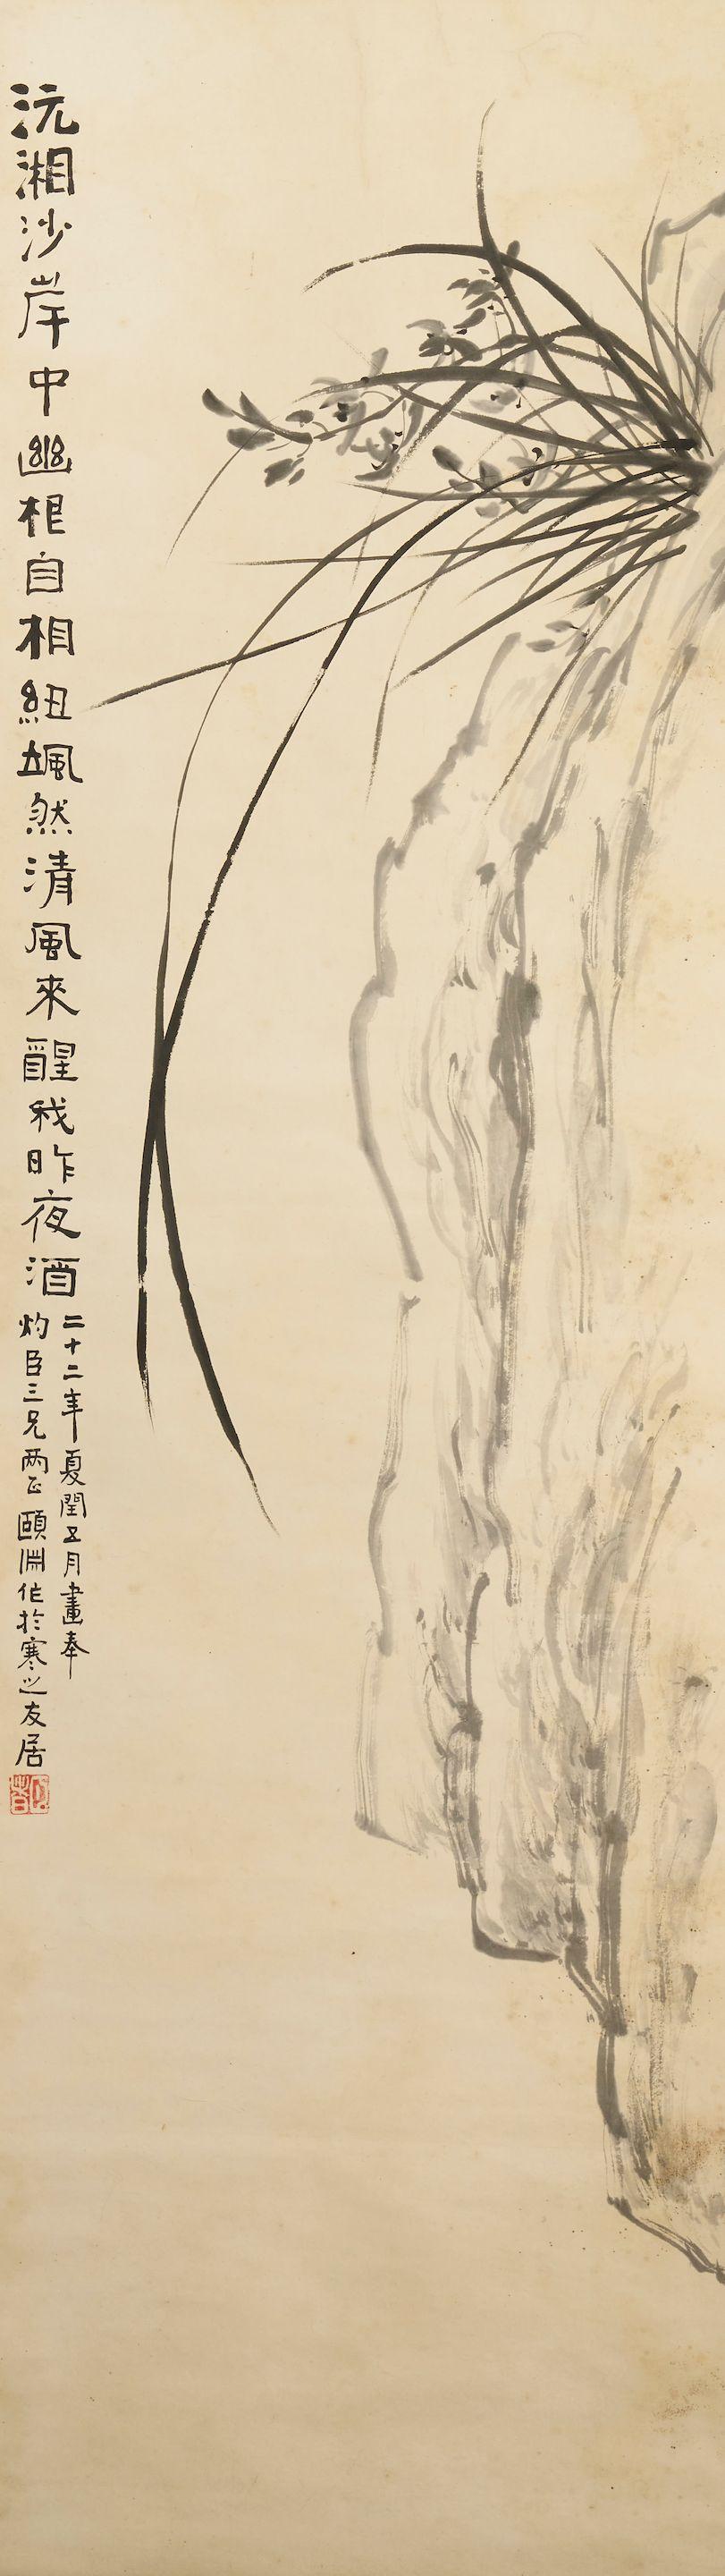 沅湘沙岸中幽根自相紐颯然清風來醒我昨夜酒
二十二年夏閏五月畫奉
灼臣三兄兩正頤淵作於寒之友居